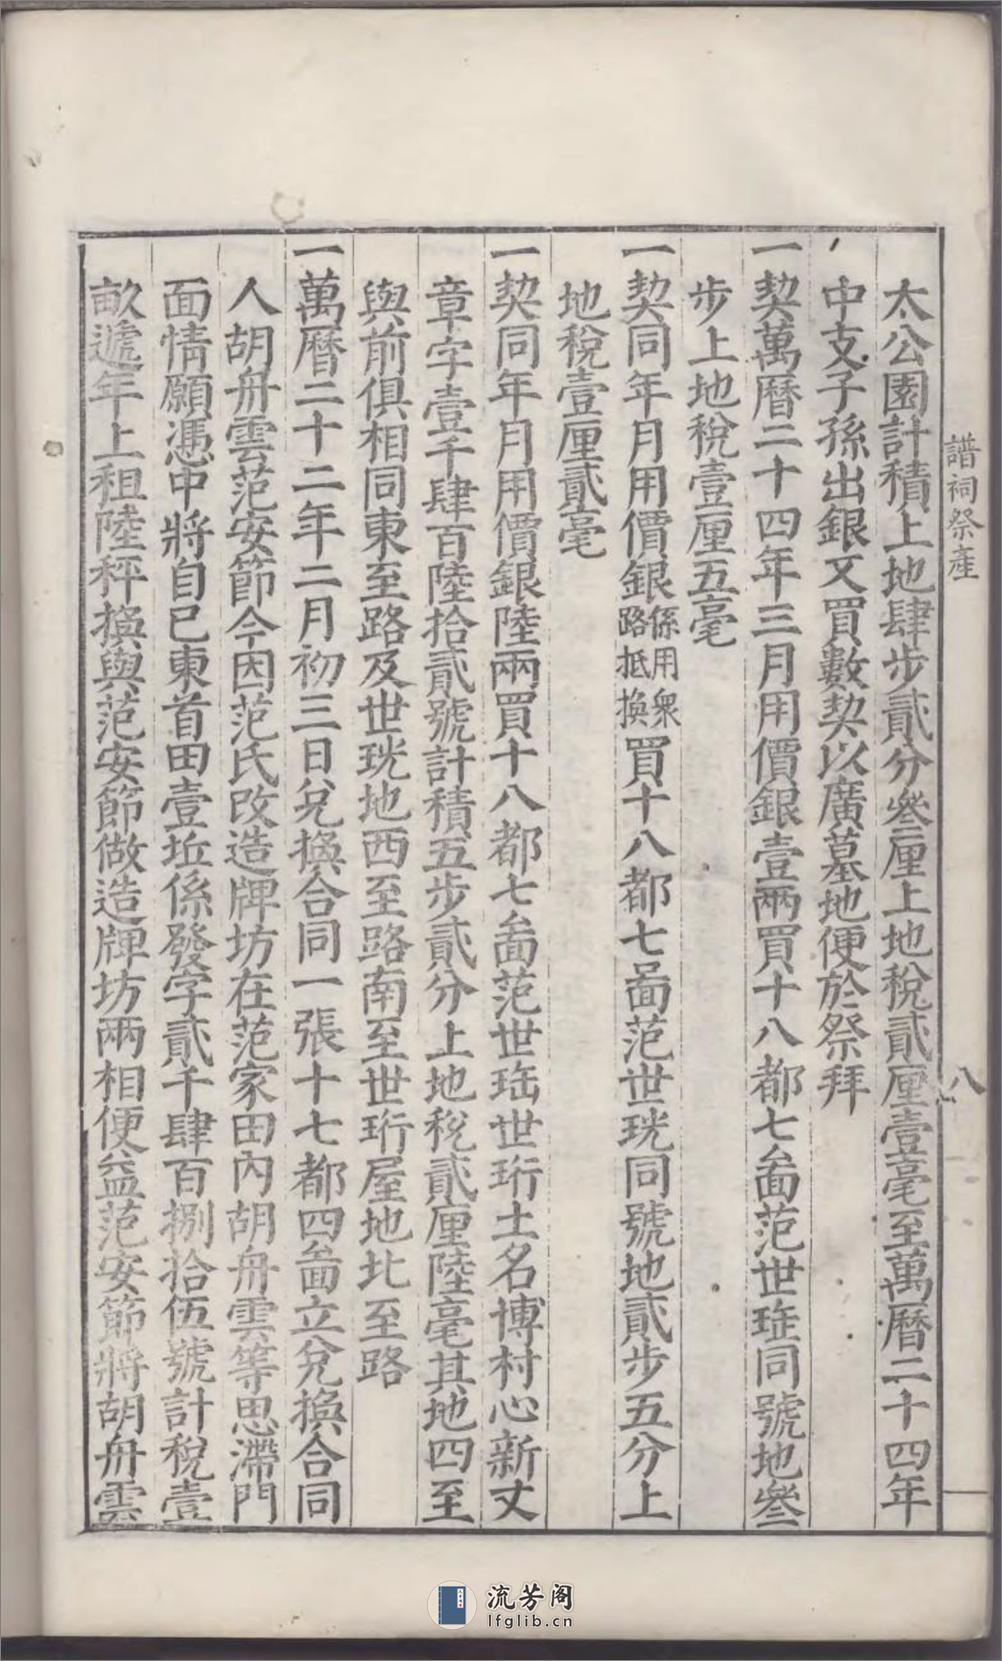 譜祠祭產
八
太公園計積上地肆步貳分叄厘上地稅貳厘壹毫至萬曆二十四年
中支子孫出銀又買數契以廣墓地便於祭拜
一契萬曆二十四年三月用價銀壹兩買十八都七啚范世𤤴同號地叄
步上地稅壹厘五毫
一契同年月用價銀係用衆路抵換買十八都七啚范世珖同號地貳步五分上
地稅壹厘貳毫
一契同年月用價銀陸兩買十八都七啚范世㻉世珩土名博村心新丈
章字壹千肆百陸拾貳號計積五步貳分上地稅貳厘陸毫其地四至
與前俱相同東至路及世珖地西至路南至世珩屋地北至路
一萬曆二十二年二月初三日兌換合同一張十七都四啚立兌換合同
人胡舟雲范安節今因范氏改造牌坊在范家田內胡舟雲等思滯門
面情願憑中將自已東首田壹坵係發字貳千肆百捌拾伍號計稅壹
畝遞年上租陸秤換與范安節做造牌坊兩相便益范安節將胡舟雲
流芳阁
lfglib.cn